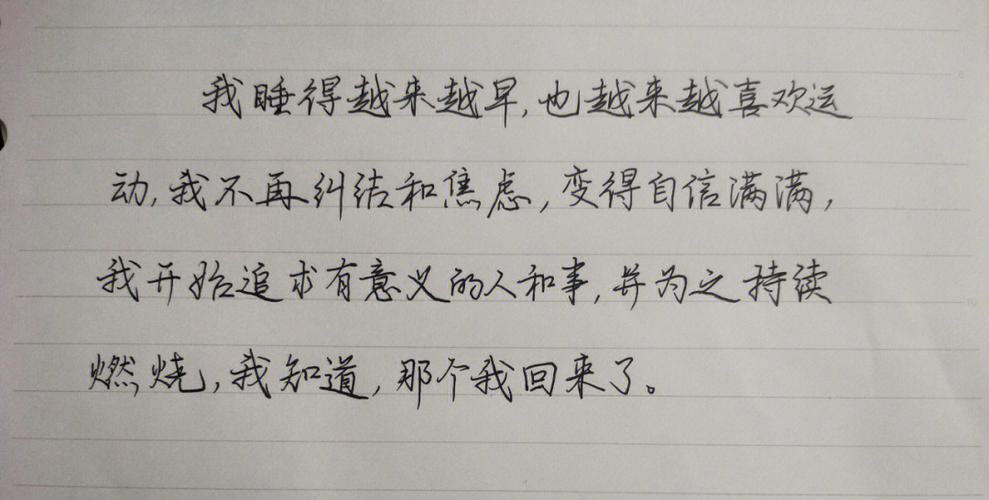 我睡得越来越早,也越来越喜欢运
动,我不再纠结和焦虑,变得自信满满,
我开始追求有意义的人和事,并为之持续
燃烧,我知道,那个我回来了。